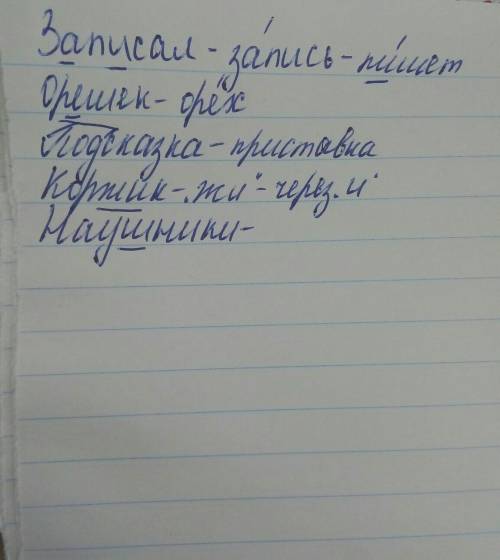 Записал - за́пись - пи́шет
Орешек - оре́х
Подсказка - приставка
Коржик - „жи" - через „и"
Наушники -